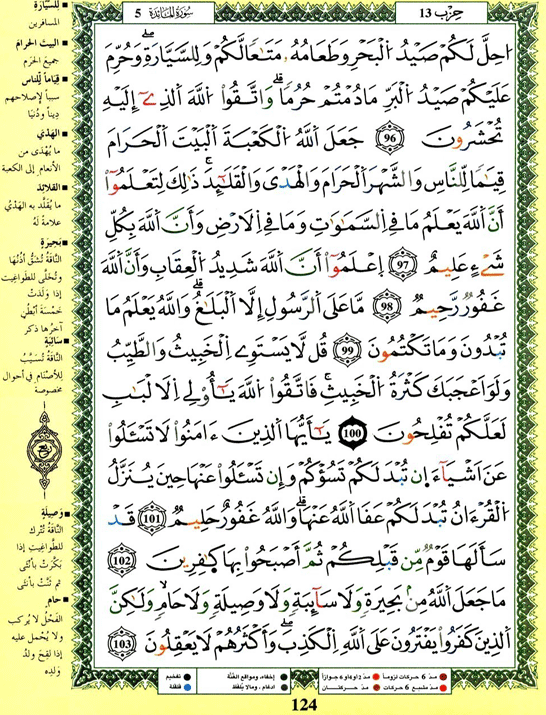 حِزْب 13
سُورَةُ الْمَائِدَة 5
اُحِلَّ لَكُمْ صَيْدُ الْبَحْرِ وَطَعَامُهُ مَتَٰعاً لَّكُمْ وَلِلسَّيَّارَةِ وَحُرِّمَ
عَلَيْكُمْ صَيْدُ الْبَرِّ مَا دُمْتُمْ حُرُماً وَاتَّقُوا اللَّهَ الَّذِے إِلَيْهِ
تُحْشَرُونَ 96 جَعَلَ اللَّهُ الْكَعْبَةَ الْبَيْتَ الْحَرَامَ
قِيَٰماً لِّلنَّاسِ وَالشَّهْرَ الْحَرَامَ وَالْهَدْىَ وَالْقَلَٰٓئِدَ ذَٰلِكَ لِتَعْلَمُوٓا
أَنَّ اللَّهَ يَعْلَمُ مَا فِے السَّمَٰوَٰتِ وَمَا فِے الْاَرْضِ وَأَنَّ اللَّهَ بِكُلِّ
شَےْءٍ عَلِيمٌ 97 اِعْلَمُوٓا أَنَّ اللَّهَ شَدِيدُ الْعِقَابِ وَأَنَّ اللَّهَ
غَفُورٌ رَّحِيمٌ 98 مَّا عَلَى الرَّسُولِ إِلَّا الْبَلَٰغُ وَاللَّهُ يَعْلَمُ مَا
تُبْدُونَ وَمَا تَكْتُمُونَ 99 قُل لَّا يَسْتَوِے الْخَبِيثُ وَالطَّيِّبُ
وَلَوَ اَعْجَبَكَ كَثْرَةُ الْخَبِيثِ فَاتَّقُوا اللَّهَ يَٰٓأُوْلِے الْاَلْبَٰبِ
لَعَلَّكُمْ تُفْلِحُونَ 100 يَٰٓأَيُّهَا الَّذِينَ ءَامَنُوا لَا تَسْـَٔلُوا
عَنَ اَشْيَآءَ ان تُبْدَ لَكُمْ تَسُؤْكُمْ وَإِن تَسْـَٔلُوا عَنْهَا حِينَ يُنَزَّلُ
الْقُرْءَانُ تُبْدَ لَكُمْ عَفَا اللَّهُ عَنْهَا وَاللَّهُ غَفُورٌ حَلِيمٌ 101 قَدْ
سَأَلَهَا قَوْمٌ مِّن قَبْلِكُمْ ثُمَّ أَصْبَحُوا بِهَا كَٰفِرِينَ 102
مَا جَعَلَ اللَّهُ مِنۢ بَحِيرَةٍ وَلَا سَآئِبَةٍ وَلَا وَصِيلَةٍ وَلَا حَامٍ وَلَٰكِنَّ
الَّذِينَ كَفَرُوا يَفْتَرُونَ عَلَى اللَّهِ الْكَذِبَ وَأَكْثَرُهُمْ لَا يَعْقِلُونَ 103
لِلسَّيَّارَةِ
المسافرين
البيتَ الحرامَ
جميعَ الحَرَم
قِيَاماً لِلناس
سبباً لإصلاحهم
دِيناً ودُنْيَا
الهَدْيَ
ما يُهْدَى من
الأنعام إلى الكعبة
القلائدَ
ما يُقَلَّد به الهَدْيُ
علامةً لَهُ
بَحِيرَةٍ
النَّاقَةُ تُشَقُّ أُذُنُهَا
وتُخَلَّى للطواغيت
إذا وَلَدَتْ
خَمْسَةَ أَبْطُنٍ
آخرُها ذكر
سَائِبَةٍ
النَّاقَةُ تُسَيَّبُ
للأصنام في أحوال
مخصوصة
وَصِيلَةٍ
النَّاقَةُ تُتْرَك
للطَّواغِيتِ إذا
بَكَّرَتْ بأُنْثَى
ثم ثَنَّتْ بأنثى
حَامٍ
الفَحْلُ لا يُركب
ولا يُحْمل عليه
إذا لَقِحَ ولدُ
وَلَدِه
مدّ 6 حركات لزوماً
مدّ 2 أو 4 أو 6 جوازاً
إخفاء، ومواقع الغُنَّة
تفخيم
مدّ مشبع 6 حركات
مدّ حركتان
ادغام، ومالا يُلفَظ
قلقلة
124